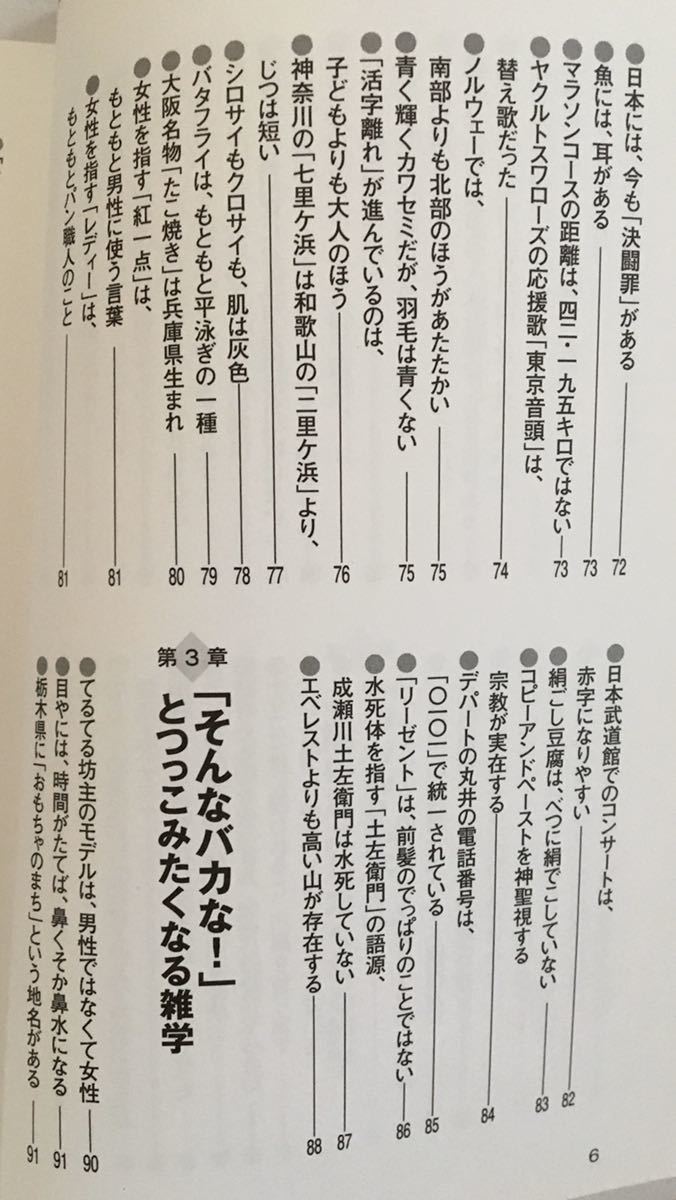 日本には、今も「決闘罪」がある 72
魚には、耳がある 73
マラソンコースの距離は、四二・一九五キロではない 73
ヤクルトスワローズの応援歌「東京音頭」は、
替え歌だった 74
ノルウェーでは、
南部よりも北部のほうがあたたかい 75
青く輝くカワセミだが、羽毛は青くない 75
「活字離れ」が進んでいるのは、
子どもよりも大人のほう 76
神奈川の「七里ケ浜」は和歌山の「二里ケ浜」より、
じつは短い 77
シロサイもクロサイも、肌は灰色 78
バタフライは、もともと平泳ぎの一種 79
大阪名物「たこ焼き」は兵庫県生まれ 80
女性を指す「紅一点」は、
もともと男性に使う言葉 81
女性を指す「レディー」は、
もともとパン職人のこと 81
日本武道館でのコンサートは、
赤字になりやすい 82
絹ごし豆腐は、べつに絹でこしていない 83
コピーアンドペーストを神聖視する
宗教が実在する 84
デパートの丸井の電話番号は、
「〇一〇一」で統一されている 85
「リーゼント」は、前髪のでっぱりのことではない 86
水死体を指す「土左衛門」の語源、
成瀬川土左衛門は水死していない 87
エベレストよりも高い山が存在する 88
第3章
「そんなバカな!」
とつっこみたくなる雑学
てるてる坊主のモデルは、男性ではなくて女性 90
目やには、時間がたてば、鼻くそか鼻水になる 91
栃木県に「おもちゃのまち」という地名がある 91
6